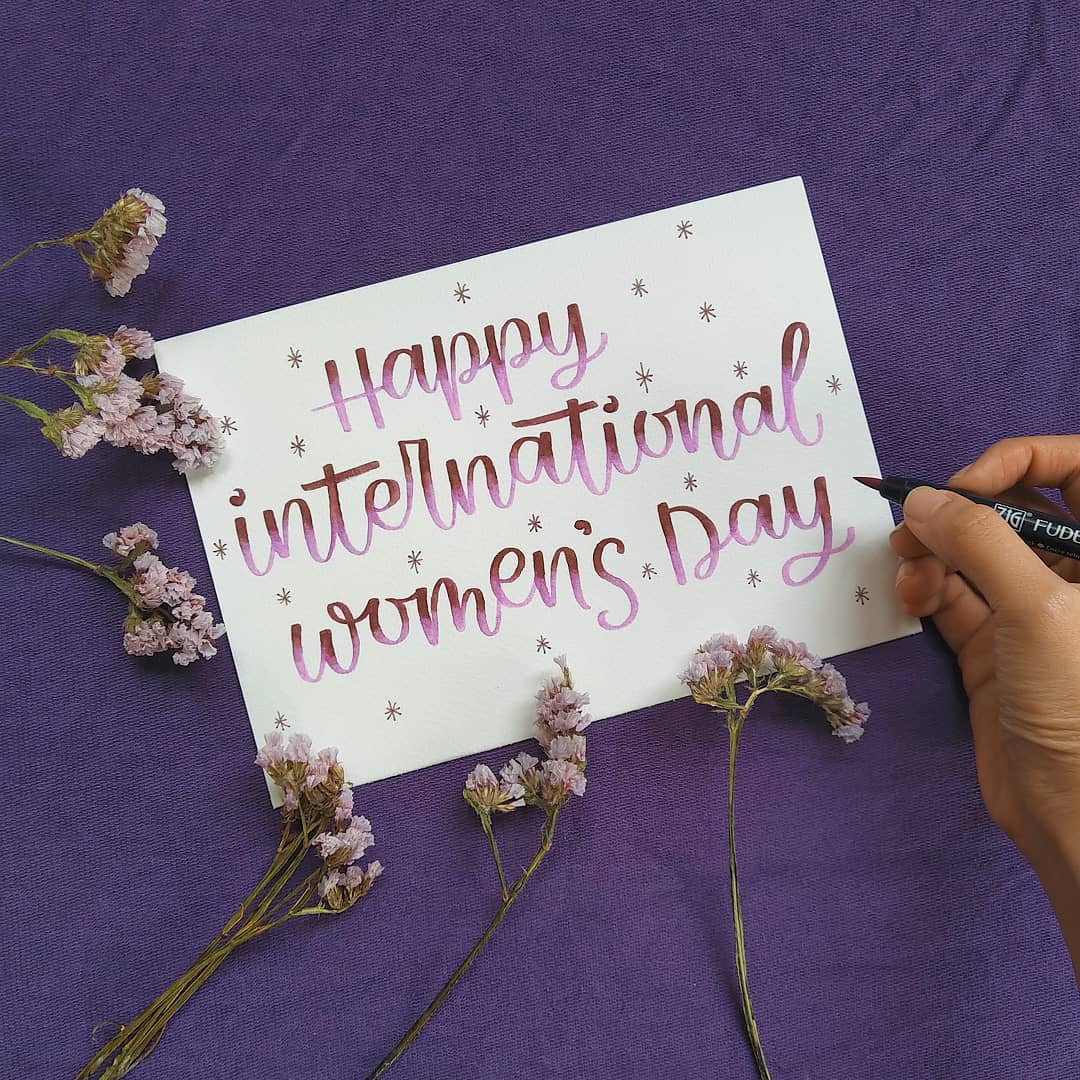 Happy
international
women's Day
ZIG FUDE